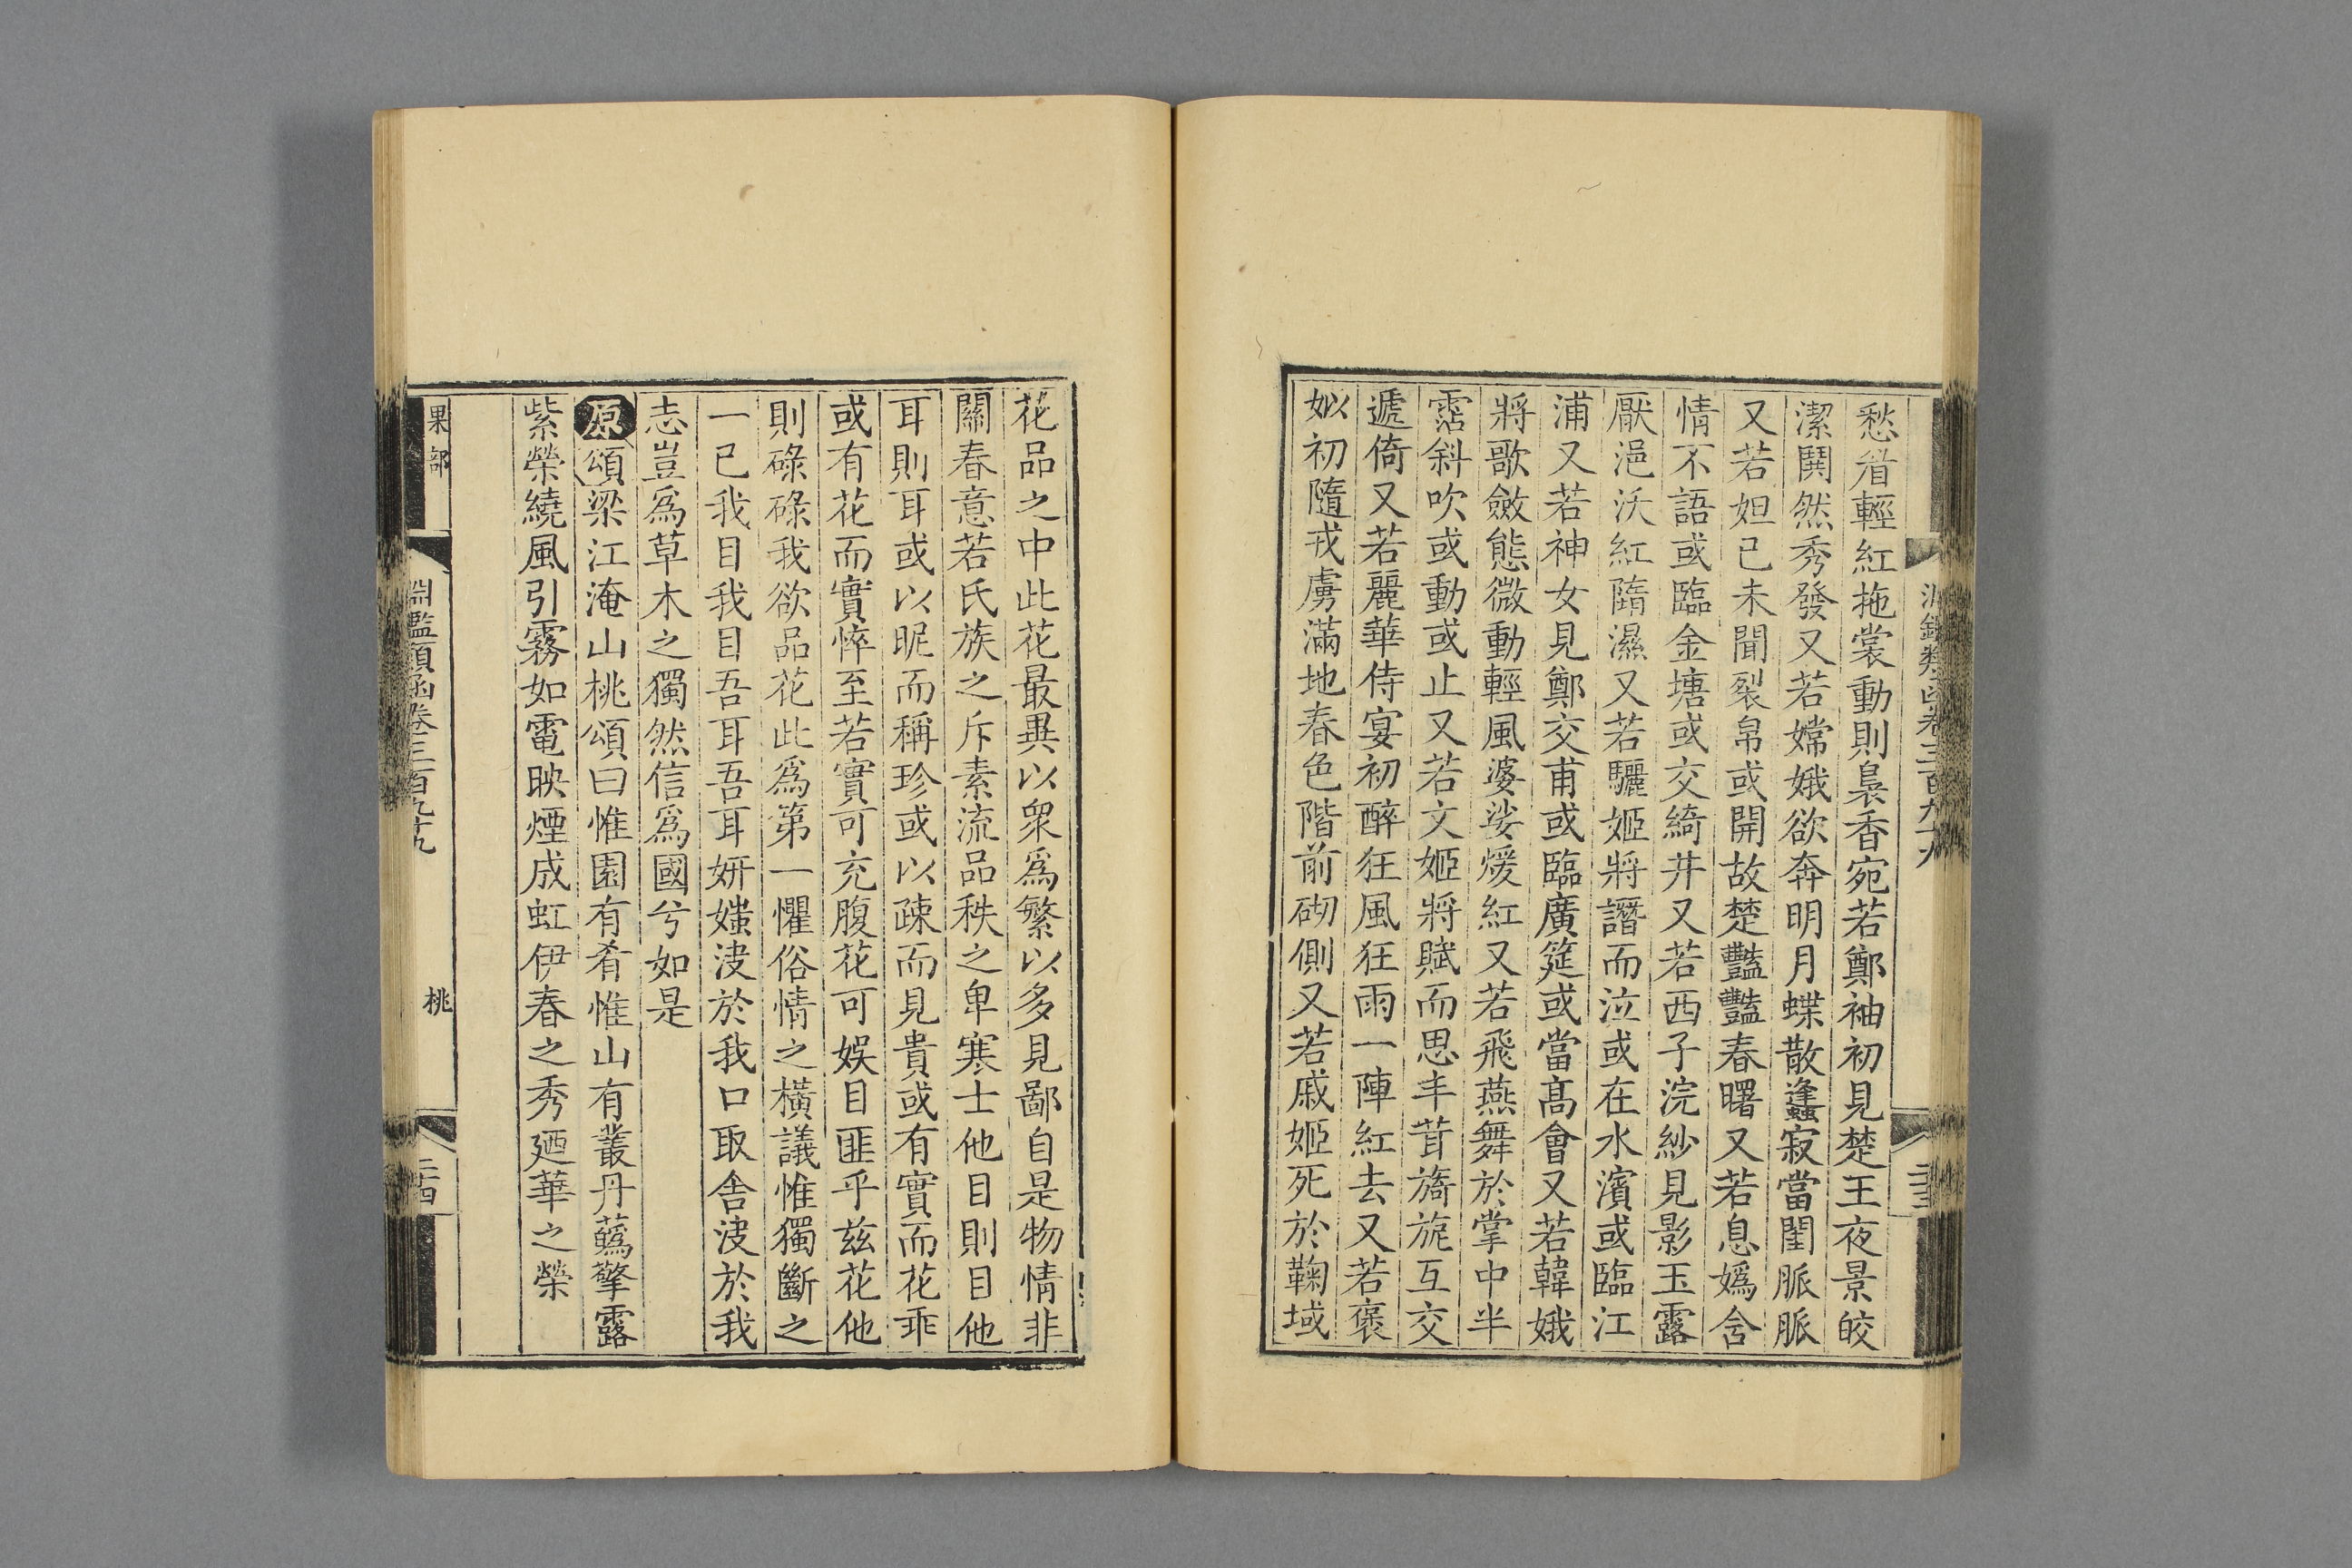 淵鑑類函卷三百九十九
二十三
愁㸔輕紅拖裳動則裊香宛若鄭袖初見楚王夜景皎
潔鬨然秀發又若嫦娥欲奔明月蝶散蠭寂當閨脈脈
又若妲己未聞裂帛或開故楚豔豔春曙又若息嬀含
情不語或臨金塘或交綺井又若西子浣紗見影玉露
厭浥沃紅隋濕又若驪姬將譖而泣或在水濱或臨江
浦又若神女見鄭交甫或臨廣筵或當髙會又若韓娥
將歌斂態微動輕風婆娑煖紅又若飛燕舞於掌中半
霑斜吹或動或止又若文姬將賦而思丰茸旖旎互交
遞倚又若麗華侍宴初醉狂風狂雨一陣紅去又若褒
姒初隨戎虜滿地春色階前砌側又若戚姬死於鞠域
花品之中此花最異以衆爲繁以多見鄙自是物情非
關春意若氏族之斥素流品秩之卑寒士他目則目他
耳則耳或以昵而稱珍或以疎而見貴或有實而花乖
或有花而實悴至若實可充腹花可娛目匪乎兹花他
則碌碌我欲品花此爲第一懼俗情之橫議惟獨斷之
一已我目我目吾耳吾耳妍媸决於我口取舍决於我
志豈爲草木之獨然信爲國兮如是
原頌梁江淹山桃頌曰惟園有肴惟山有叢丹蘤擎露
紫榮繞風引霧如電映煙成虹伊春之秀廼華之榮
果部
淵鑑類函卷三百九十九
桃
二十四